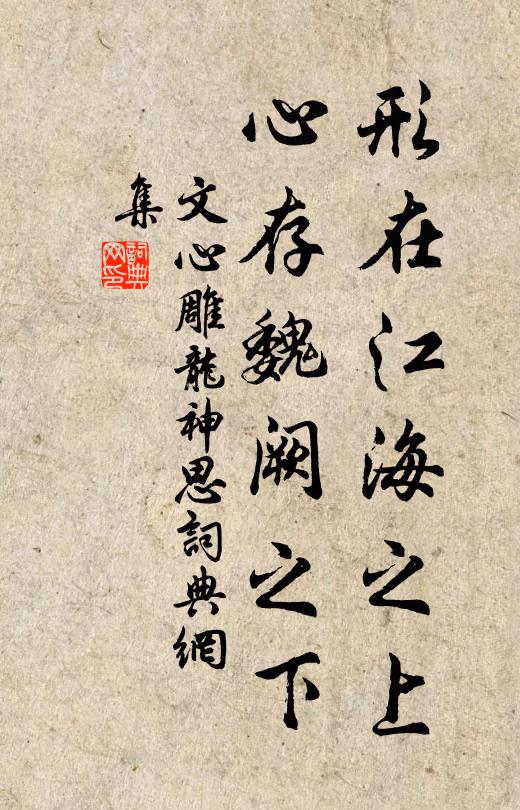 形在江海之上
心存魏阙之下
文心雕龍神思詞典網
集
詞典
网印